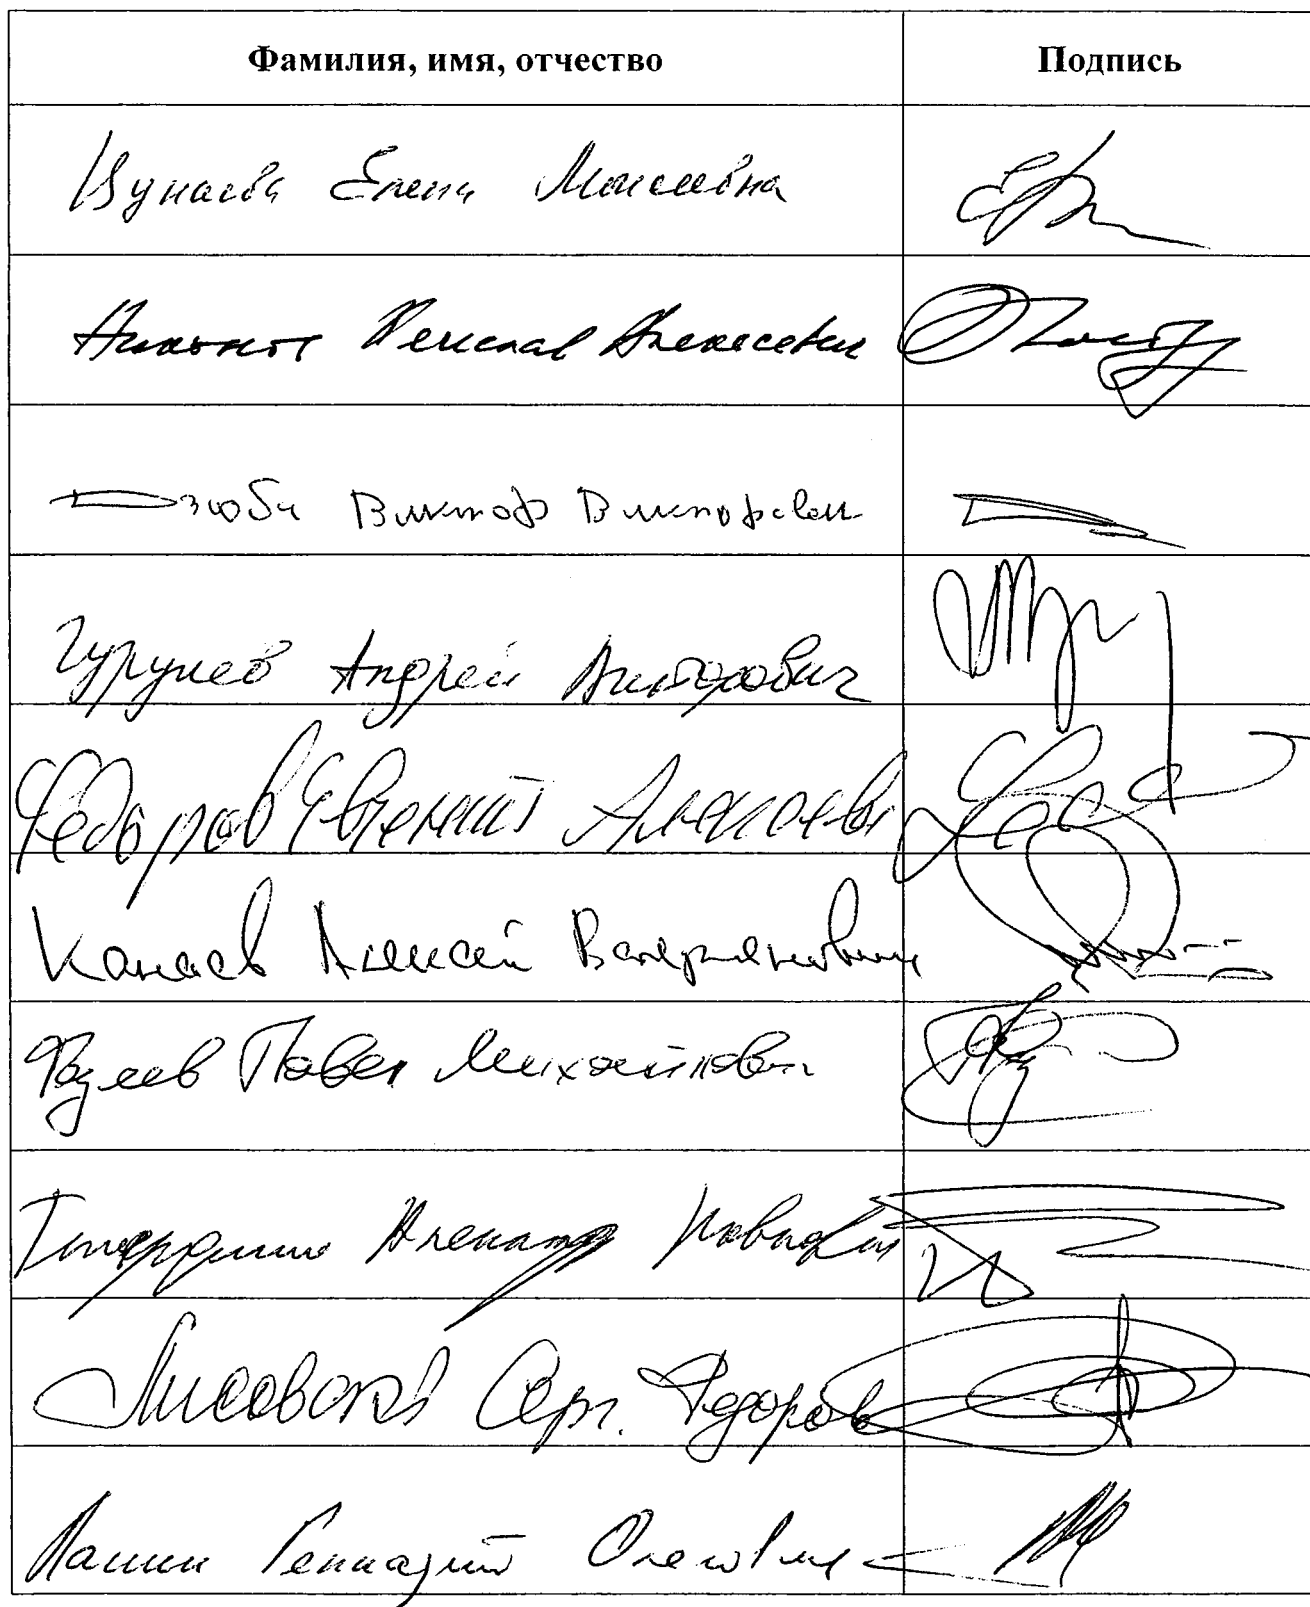 Фамилия, имя, отчество Подпись
Цунаева Елена Моисеевна
Никонов Вячеслав Алексеевич
Дзюба Виктор Викторович
Гурулев Андрей Викторович
Федоров Евгений Алексеевич
Канаев Алексей Валерианович
Фадеев Павел Михайлович
Тетердинко Александр Павлович
Лисовский Серг. Федоров
Панин Геннадий Олегович